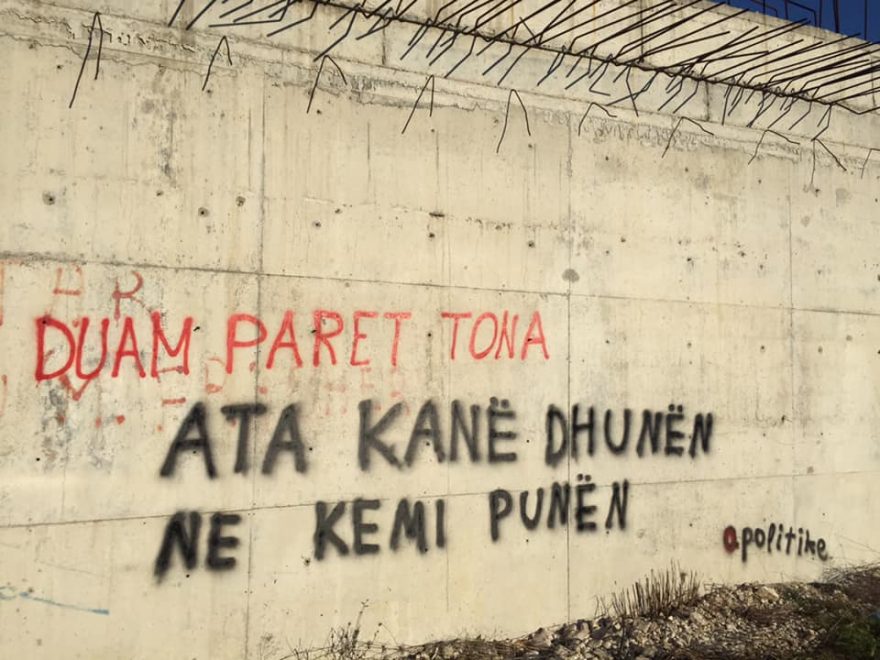 DUAM PARET TONA
ATA KANË DHUNËN
NE KEMI PUNËN
apolitike